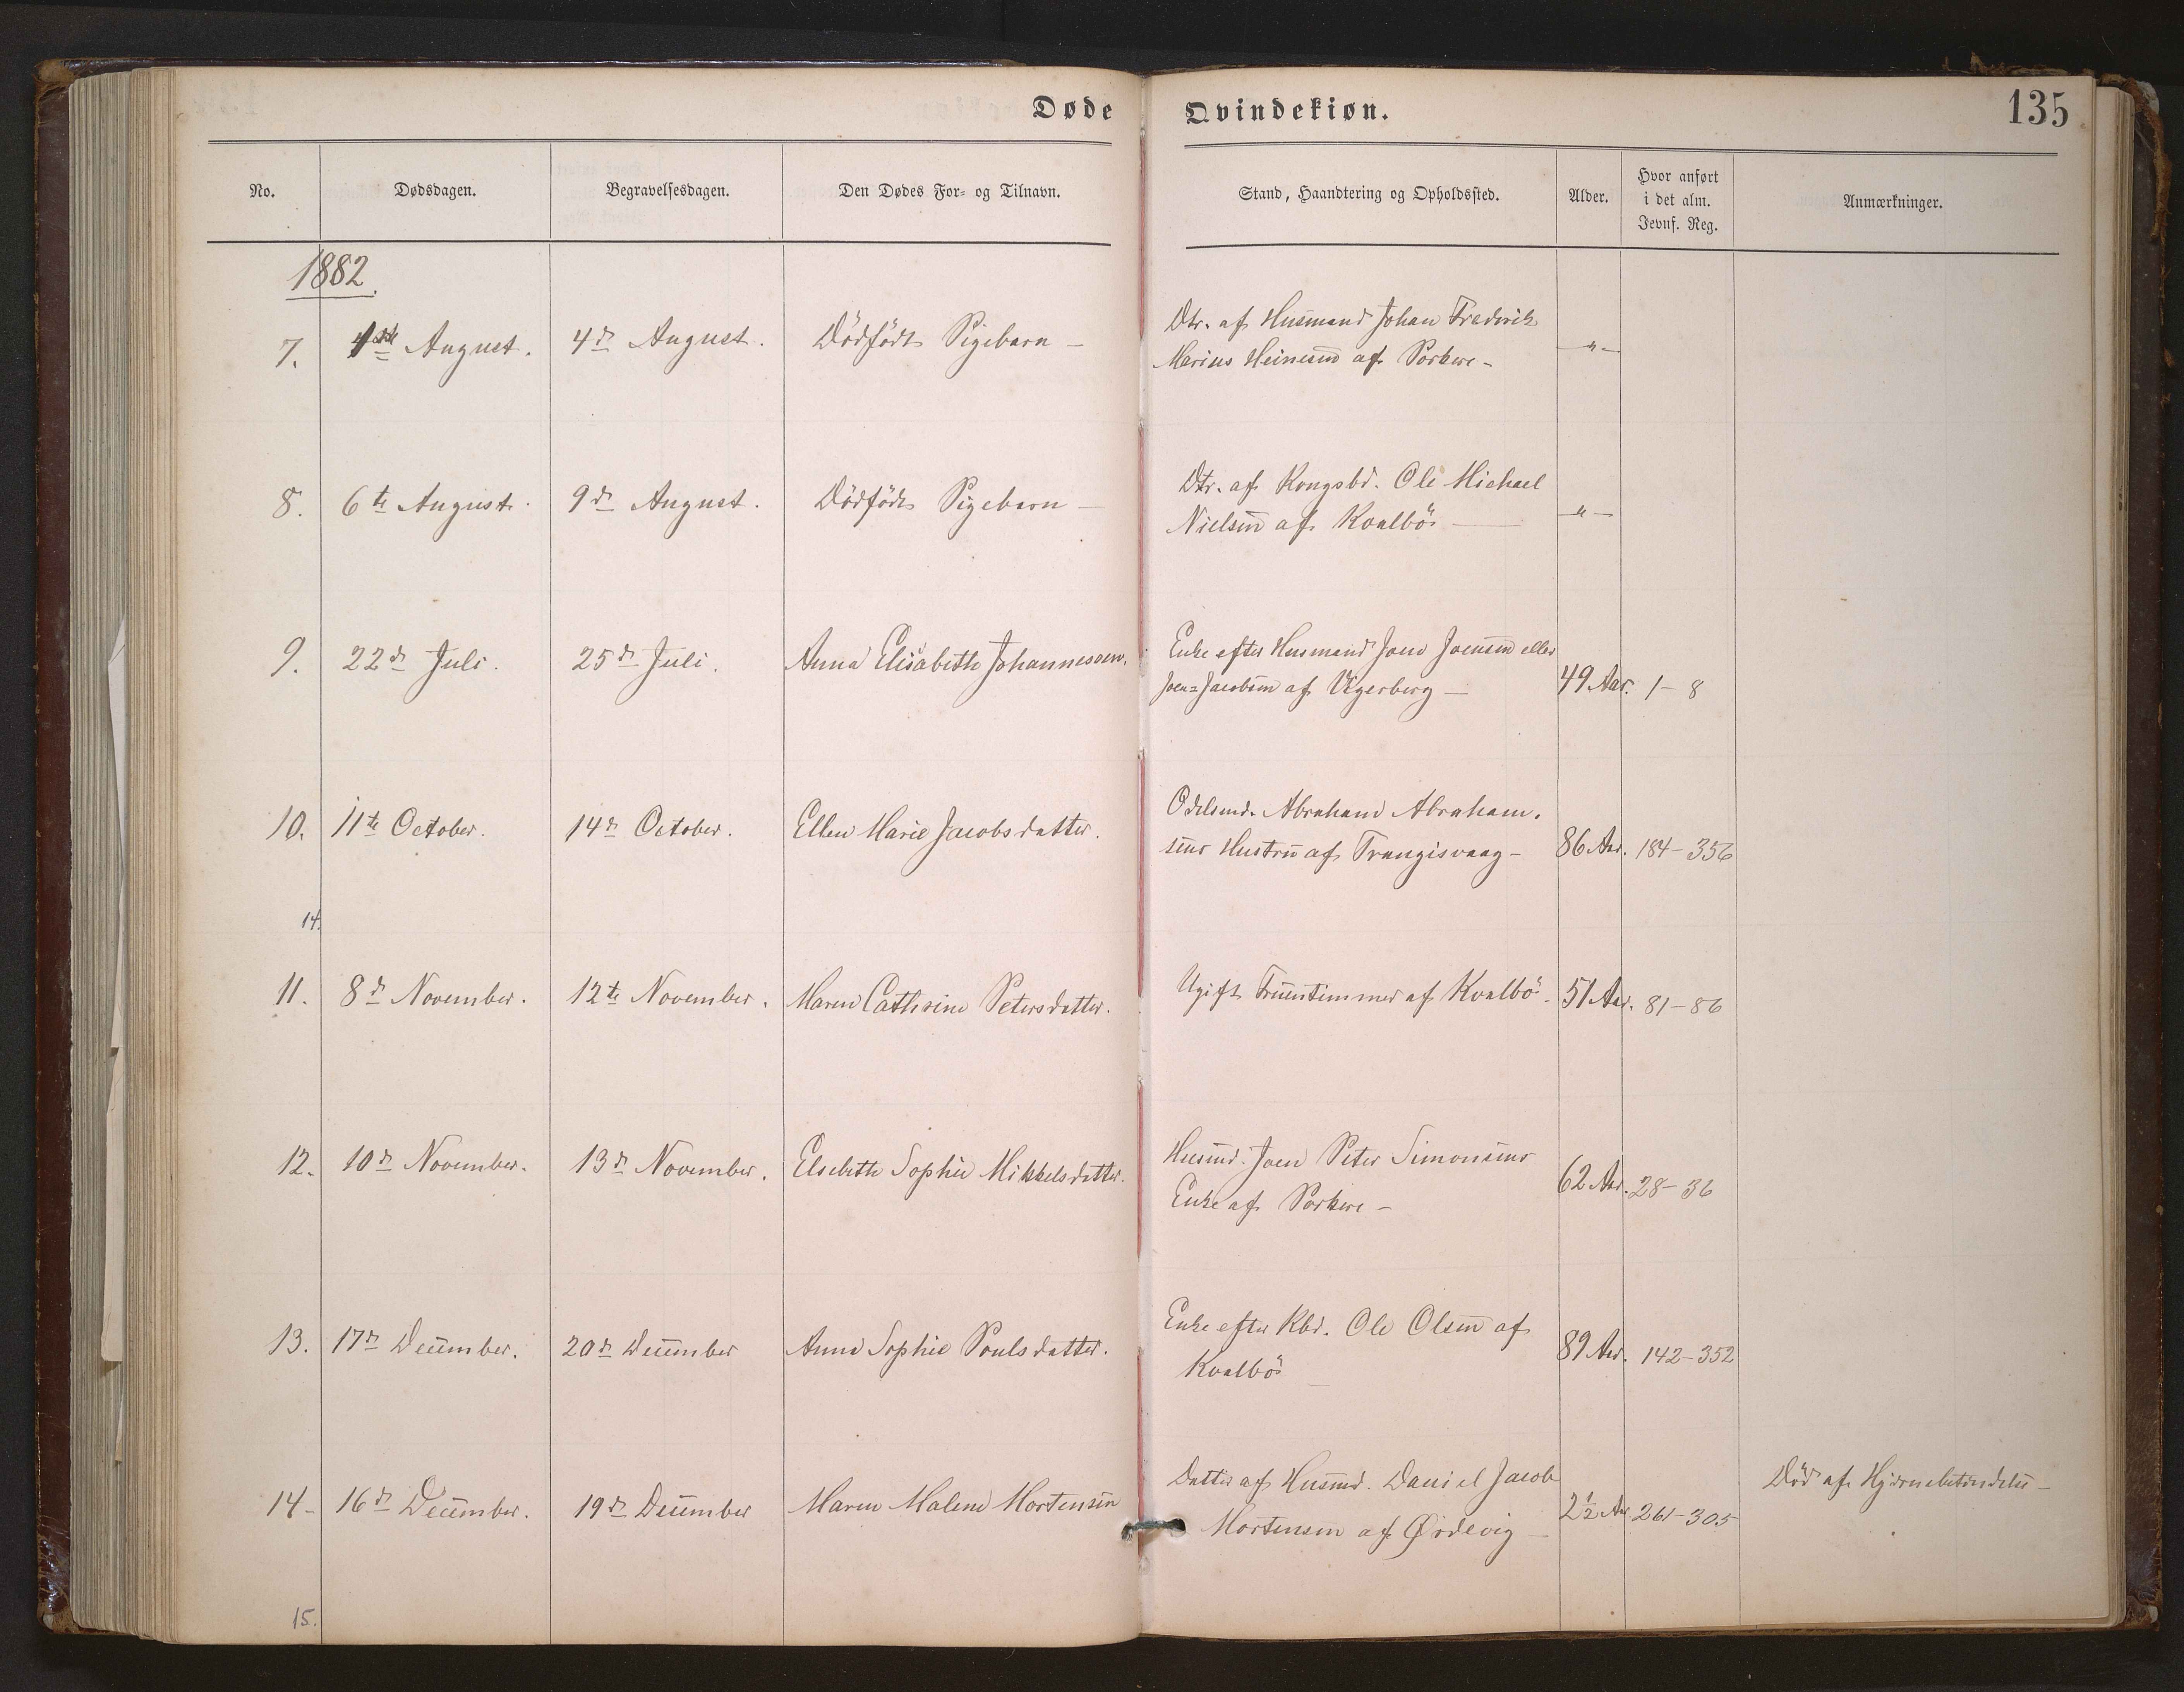 Døde Qvindekiøn. 135
No. Dødsdagen. Begravelsesdagen. Den Dødes For- og Tilnavn. Stand, Haandtering og Opholdssted. Alder. Hvor anført i det alm. Jevnf. Reg. Anmærkninger.
1882.
7. 1ste August. 4de August. Dödfödt Pigebarn - Dtr. af Husmand Johan Frederik
Marius Heinesen af Porkere - -"-
8. 6te August. 9de August. Dödfödt Pigebarn - Dtr. af Kongsbd. Ole Michael
Nielsen af Kvalbö - -"-
9. 22de Juli. 25de Juli. Anna Elisabeth Johannessen. Enke efter Husmand Joen Joensen eller
Joen=Jacobsen af Vegerberg - 49 Aar. 1-8
10. 11te October. 14de October. Ellen Marie Jacobsdatter. Odelsmd. Abraham Abraham.
sens Hustru af Trangisvaag - 86 Aar. 184-356
14.
11. 8de November. 12te November. Maren Cathrine Petersdatter. Ugift Fruentimmer af Kvalbö. 51 Aar. 81-86
12. 10de November. 13de November. Elsebeth Sophie Mikkelsdatter. Husmd. Joen Peter Simonsens
Enke af Porkere - 62 Aar. 28-36
13. 17de December. 20de December Anna Sophie Poulsdatter. Enke efter Kbd. Ole Olsen af
Kvalbö - 89 Aar. 142-352
14- 16de December. 19de December Maren Malene Mortensen Datter af Husmd. Daniel Jacob
Mortensen af Ørdevig - 2½ Aar 261-305 Död af Hjernebetændelse -
15.